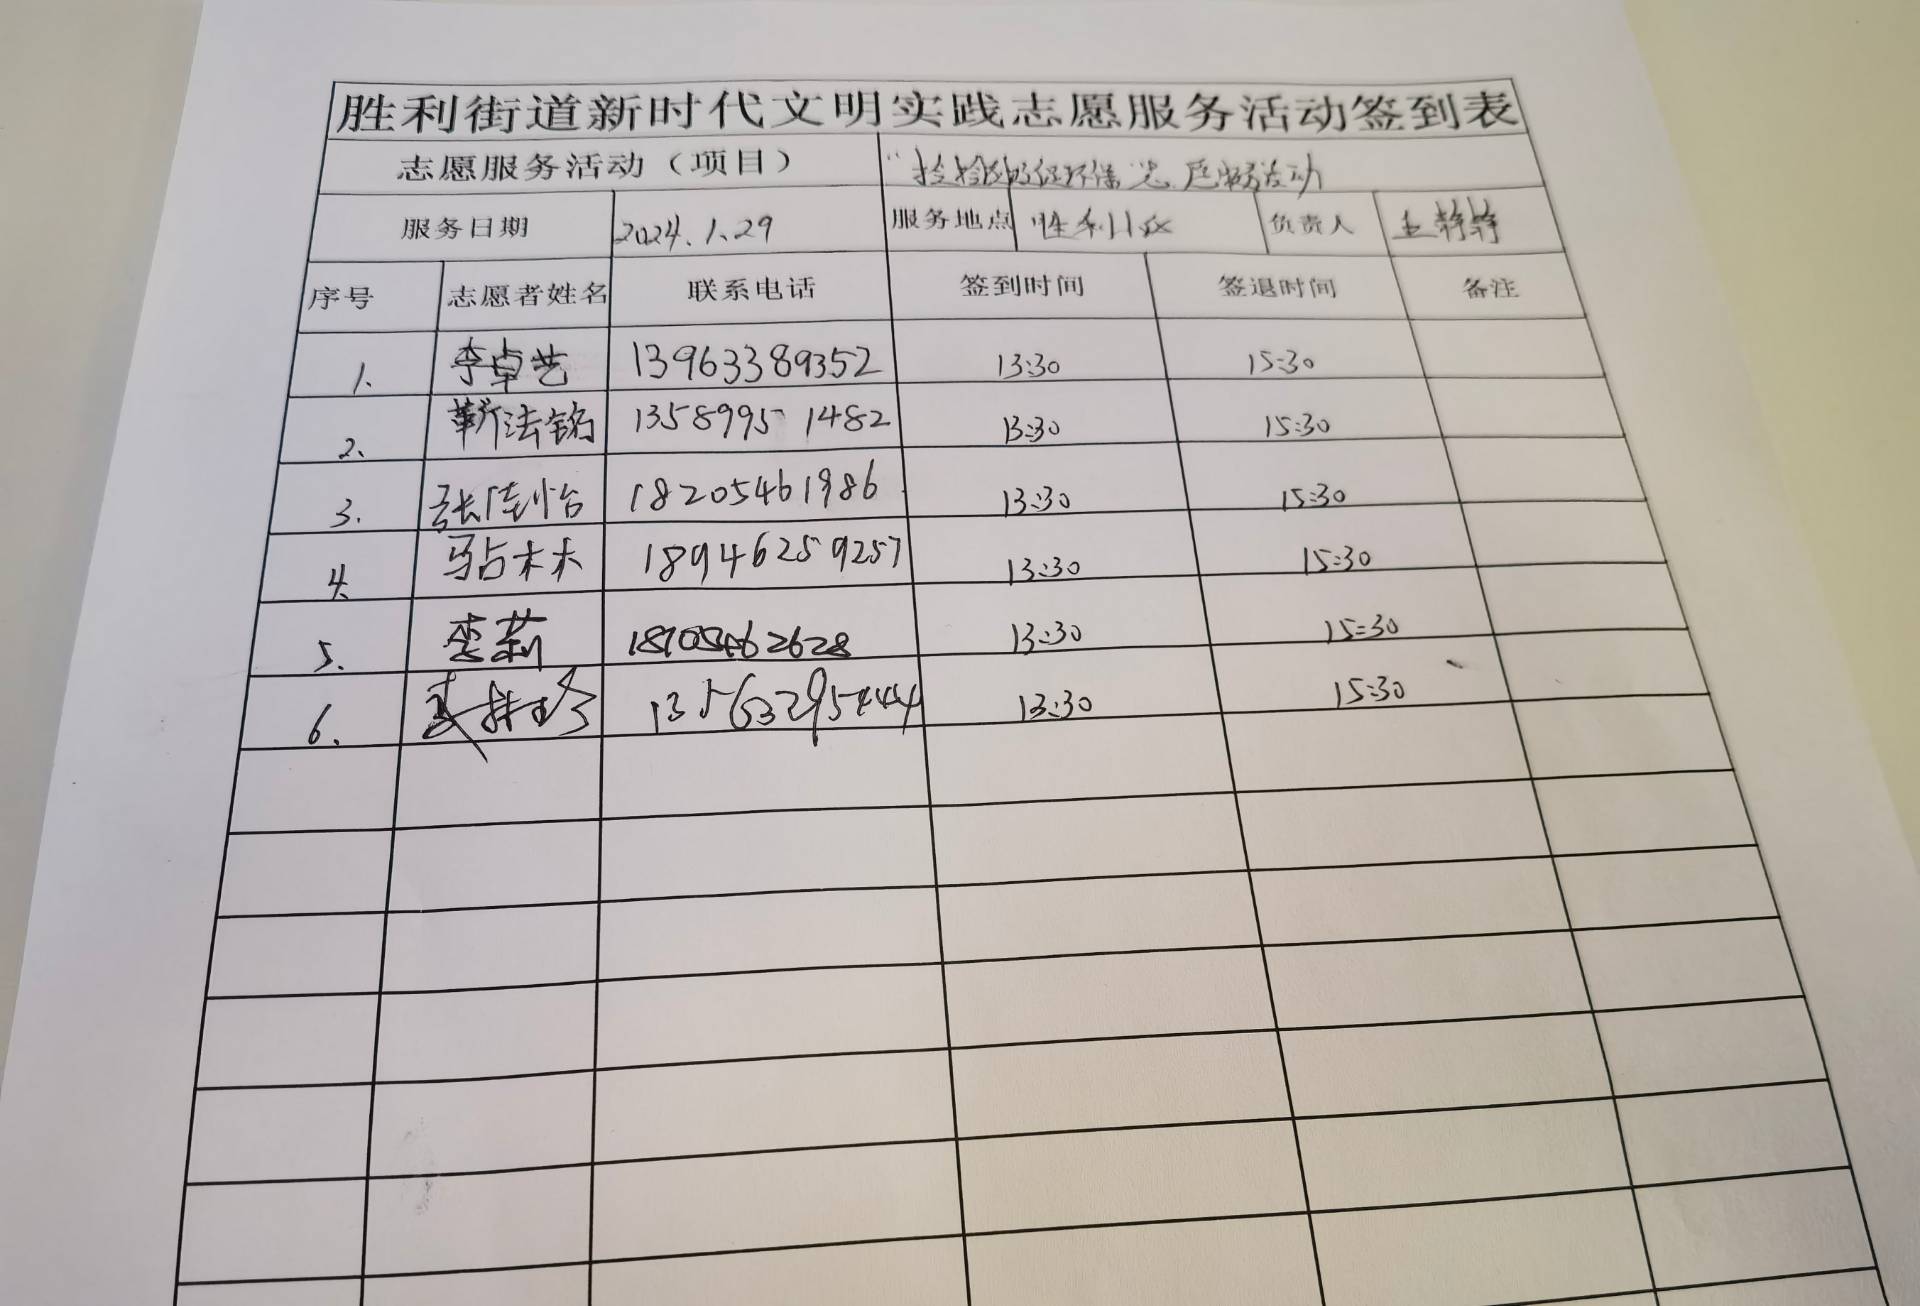 胜利街道新时代文明实践志愿服务活动签到表
志愿服务活动（项目） "捡捡 环保"志愿服务活动
服务日期 2024.1.29 服务地点 胜利 负责人 王静静
序号 志愿者姓名 联系电话 签到时间 签退时间 备注
1. 李卓艺 13963389352 13:30 15:30
2. 靳法铭 13589951482 13:30 15:30
3. 张倩怡 18205461986 13:30 15:30
4. 马占木木 18946259257 13:30 15:30
5. 李莉 18705462628 13:30 15:30
6. 13563295444 13:30 15:30